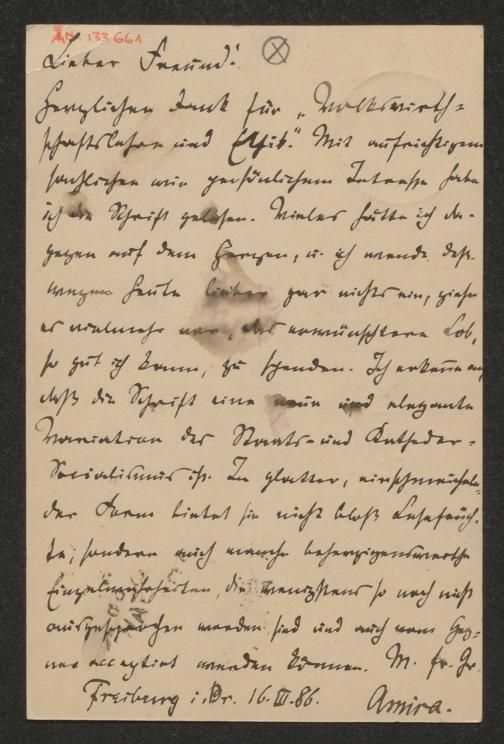 AN 133661
Lieber Freund!
Herzlichen Dank für „Volkswirth-
schaftslehre und Ethik“. Mit aufrichtigem
sachlichen wie persönlichem Interesse habe
ich die Schrift gelesen. Vieles hätte ich da-
gegen auf dem Herzen, u. ich wende deß-
wegen heute lieber gar nichts ein, ziehe
es vielmehr vor, das erwünschtere Lob,
so gut ich kann, zu spenden. Ich erkenne an,
daß die Schrift eine neue und elegante
Variation des Staats- und Katheder-
Socialismus ist. In glatter, einschmeicheln-
der Form bietet sie nicht bloß Lesefrüch-
te, sondern auch manche beherzigenswerthe
Einzelwahrheiten, die wenigstens so noch nicht
ausgesprochen worden sind und auch vom Geg-
ner acceptirt werden können. M. fr. Gr.
Freiburg i. Br. 16. III. 86. Amira.